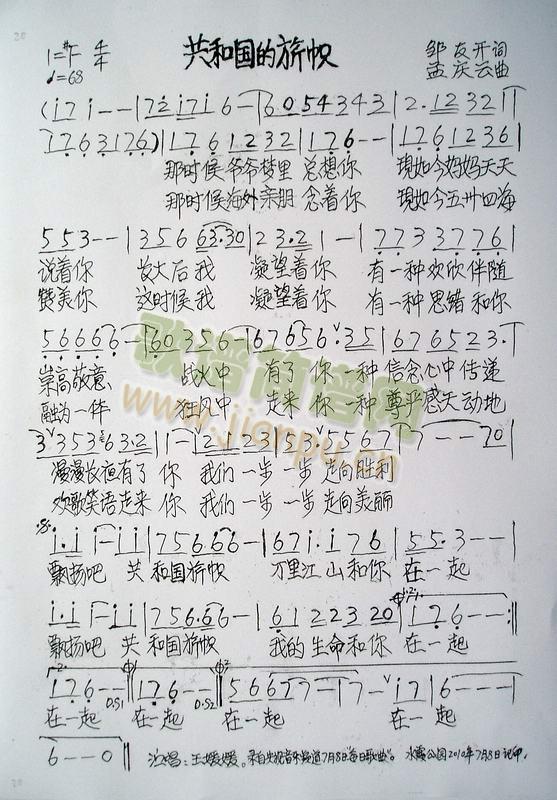 共和国的旗帜
1=♯F 4/4
♩=68
邹友开词
孟庆云曲
(i 7 i - - | 7 2 i 7 i 6 - | 6 0 5 4 3 4 3 | 2 · 1 2 3 2 1 |
1 7 6 3 1 7 6) | 1 7 6 1 2 3 2 | 1 7 6 - - | 1 7 6 1 2 3 6 |
那时候爷爷梦里 总想你 現如今妈妈天天
那时候海外亲朋 念着你 現如今五卅四海
5 5 3 - - | 3 5 6 6 3 · 3 0 | 2 3 · 2 1 - | 7 7 3 3 7 7 6 |
说着你 长大后我 凝望着你 有一种欢欣伴随
赞美你 这时候我 凝望着你 有一种思绪和你
5 6 6 6 6 6 - | 6 0 3 5 6 - | 6 7 6 5 6 · 3 5 | 6 7 6 5 2 3 · |
崇高敬意、 战火中 有了你一种信念心中传递
融为一体 狂风中 走来你一种尊乎感天动地
3 3 5 3 3 6 3 2 | 1 - 2 1 2 3 | 5 3 5 5 6 7 | 7 - - 7 0 |
漫漫长夜有了你 我们一步一步走向胜利
欢歌笑语走来你 我们一步一步走向美丽
i · i i - i i | 7 5 6 · 6 6 - | 6 7 i · i 7 6 | 5 5 · 3 - - |
飘扬吧 共和国旗帜 万里江山和你 在一起
i · i i - i i | 7 5 6 · 6 6 - | 6 1 2 2 3 2 0 | 1 7 6 - - :‖
飘扬吧 共和国旗帜 我的生命和你 在一起
1 7 6 - - D.S1 | 1 7 6 - - D.S2 | 5 6 6 7 7 - | 7 - i 7 | 6 - - - |
在一起 在一起 在一起 在一起
6 - - 0 ‖ 演唱：王媛媛。录自央视音乐频道7月8日每日歌曲。 水霞公园2010年7月8日记印.
歌谱简谱网
www.jianpu.cn